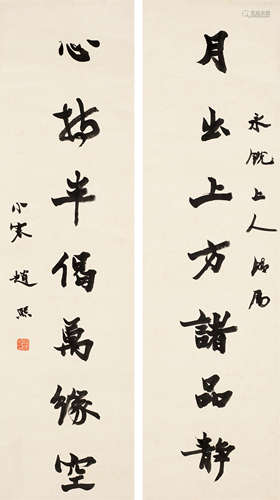 永殿上人法属
月出上方諸品静
心持半偈萬緣空
小寒 趙熙